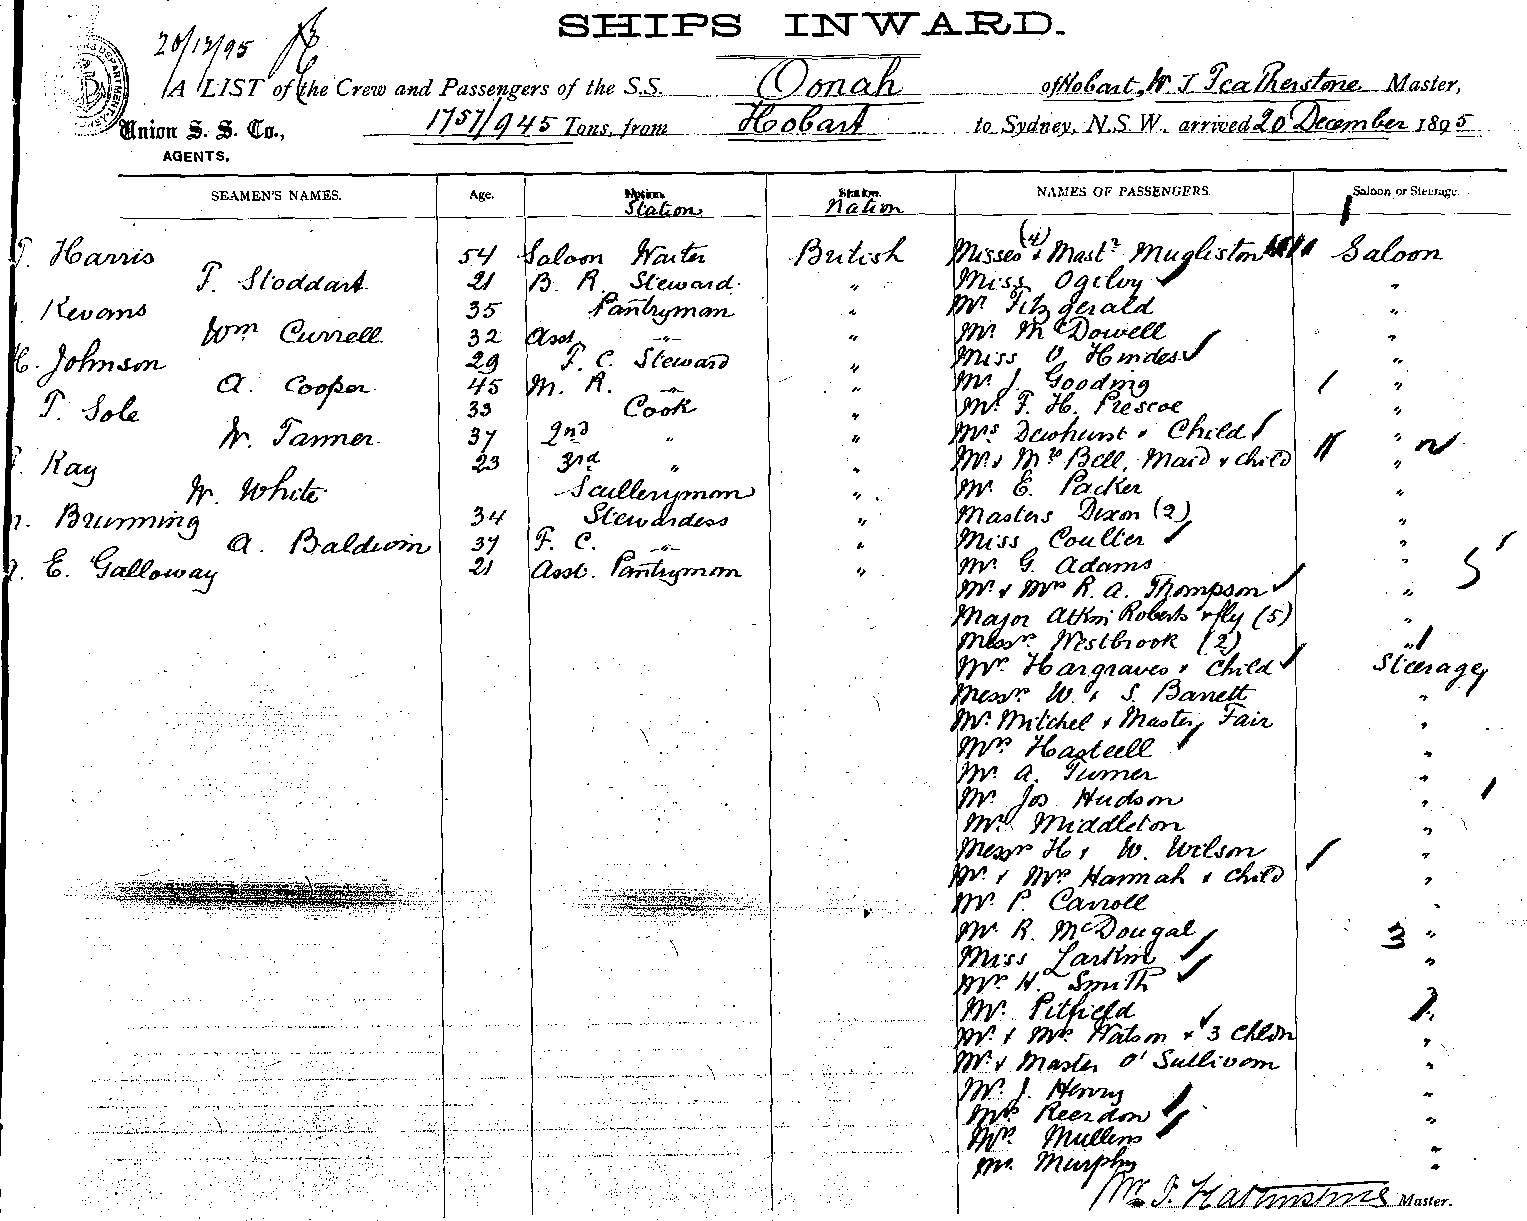 SHIPS INWARD.
20/12/95
A LIST of the Crew and Passengers of the S.S. Oonah of Hobart, W. J. Featherstone Master,
Union S. S. Co., 1757/945 Tons, from Hobart to Sydney, N.S.W. arrived 20 December 1895
AGENTS.
SEAMEN'S NAMES. Age. Station Nation NAMES OF PASSENGERS. Saloon or Steerage.
Harris 54 Saloon Waiter British Misses (4) & Mastr Mugliston Saloon
T. Stoddart 21 B. R. Steward " Miss Ogilvy "
Kevans 35 Pantryman " Mr Fitzgerald "
Wm Currell 32 Asst. " " Mr McDowell "
H. Johnson 29 F. C. Steward " Miss V. Hindes "
A. Cooper 45 M. R. " " Mr J. Gooding "
T. Sole 33 Cook " Mr F. H. Prescoe "
W. Tanner 37 2nd " " Mrs Dewhurst & Child "
Kay 23 3rd " " Mr & Mrs Bell, Maid & child "
W. White Sculleryman " Mr E. Packer "
Brunning 34 Stewardess " Masters Dixon (2) "
A. Baldwin 37 F. C. " " Miss Coulter "
E. Galloway 21 Asst. Pantryman " Mr G. Adams "
Mr & Mrs R. A. Thompson "
Major Atkin Roberts & fly (5) "
Messrs Westbrook (2) "
Mrs Hargraves & Child Steerage
Messrs W. & S. Barrett "
Mr Mitchel & Master Fair "
Mrs Hastcell "
Mr A. Turner "
Mr Jos Hudson "
Mr Middleton "
Messrs H & W. Wilson "
Mr & Mrs Hannah & Child "
Mr P. Carroll "
Mr R. McDougal 3 "
Miss Larkin "
Mrs H. Smith "
Mr Pitfield
Mr & Mrs Watson & 3 Chldn "
Mr & Master O'Sullivan "
Mr J. Henry "
Mrs Reerdon "
Mrs Mullins "
Mr Murphy "
Master.